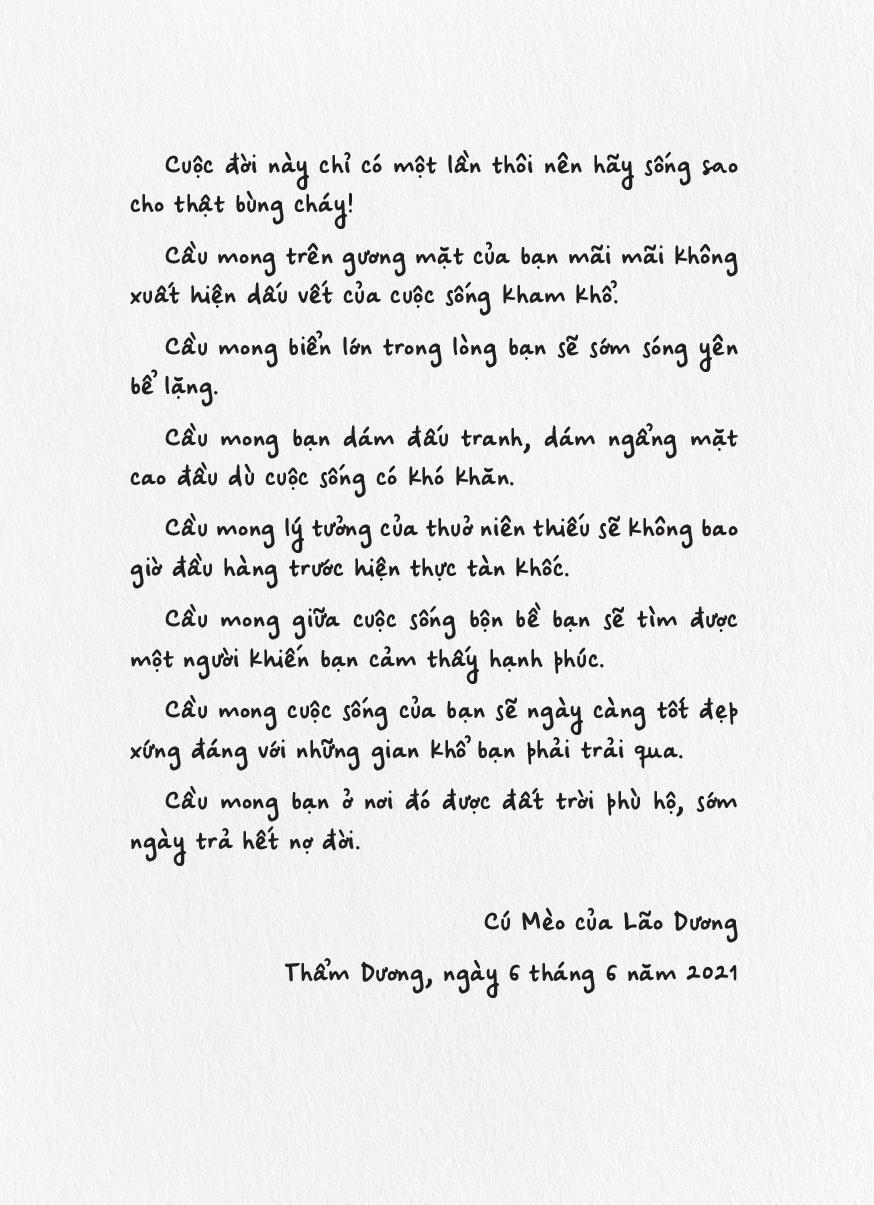 Cuộc đời này chỉ có một lần thôi nên hãy sống sao
cho thật bùng cháy!
Cầu mong trên gương mặt của bạn mãi mãi không
xuất hiện dấu vết của cuộc sống kham khổ.
Cầu mong biển lớn trong lòng bạn sẽ sớm sóng yên
bể lặng.
Cầu mong bạn dám đấu tranh, dám ngẩng mặt
cao đầu dù cuộc sống có khó khăn.
Cầu mong lý tưởng của thuở niên thiếu sẽ không bao
giờ đầu hàng trước hiện thực tàn khốc.
Cầu mong giữa cuộc sống bộn bề bạn sẽ tìm được
một người khiến bạn cảm thấy hạnh phúc.
Cầu mong cuộc sống của bạn sẽ ngày càng tốt đẹp
xứng đáng với những gian khổ bạn phải trải qua.
Cầu mong bạn ở nơi đó được đất trời phù hộ, sớm
ngày trả hết nợ đời.
Cú Mèo của Lão Dương
Thẩm Dương, ngày 6 tháng 6 năm 2021